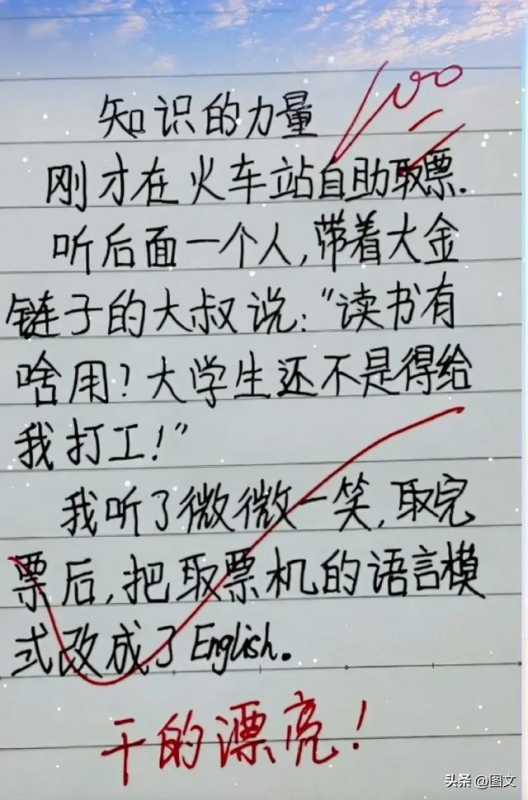 知识的力量
100
刚才在火车站自助取票.
听后面一个人,带着大金
链子的大叔说:“读书有
啥用?大学生还不是得给
我打工!”
我听了微微一笑,取完
票后,把取票机的语言模
式改成了English。
干的漂亮!
头条 @图文